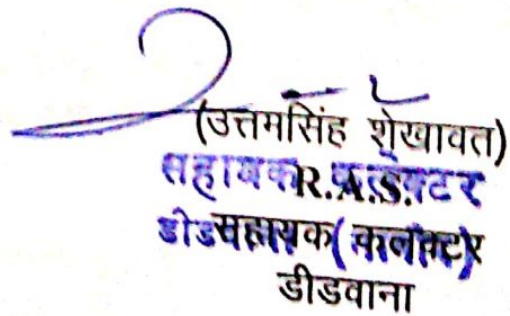 (उत्तमसिंह शेखावत)
सहायक कलक्टर
R.A.S.
सहायक कलक्टर
डीडवाना